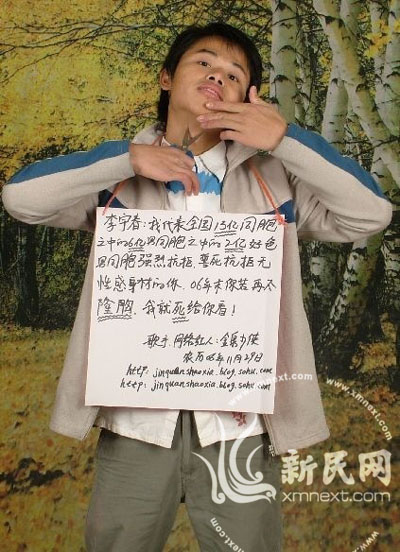 李宇春:我代表全国13亿同胞
之中的6亿男同胞之中的2亿好色
男同胞强烈抗拒、誓死抗拒无
性感身材的你、06年末你若再不
隆胸、我就死给你看!
歌手、网络红人:金泉少侠
农历06年11月29日
http:jinquanshaoxia.blog.sohu.com
http:jinquanshaoxia.blog.sohu.com
新民网
xmnext.com